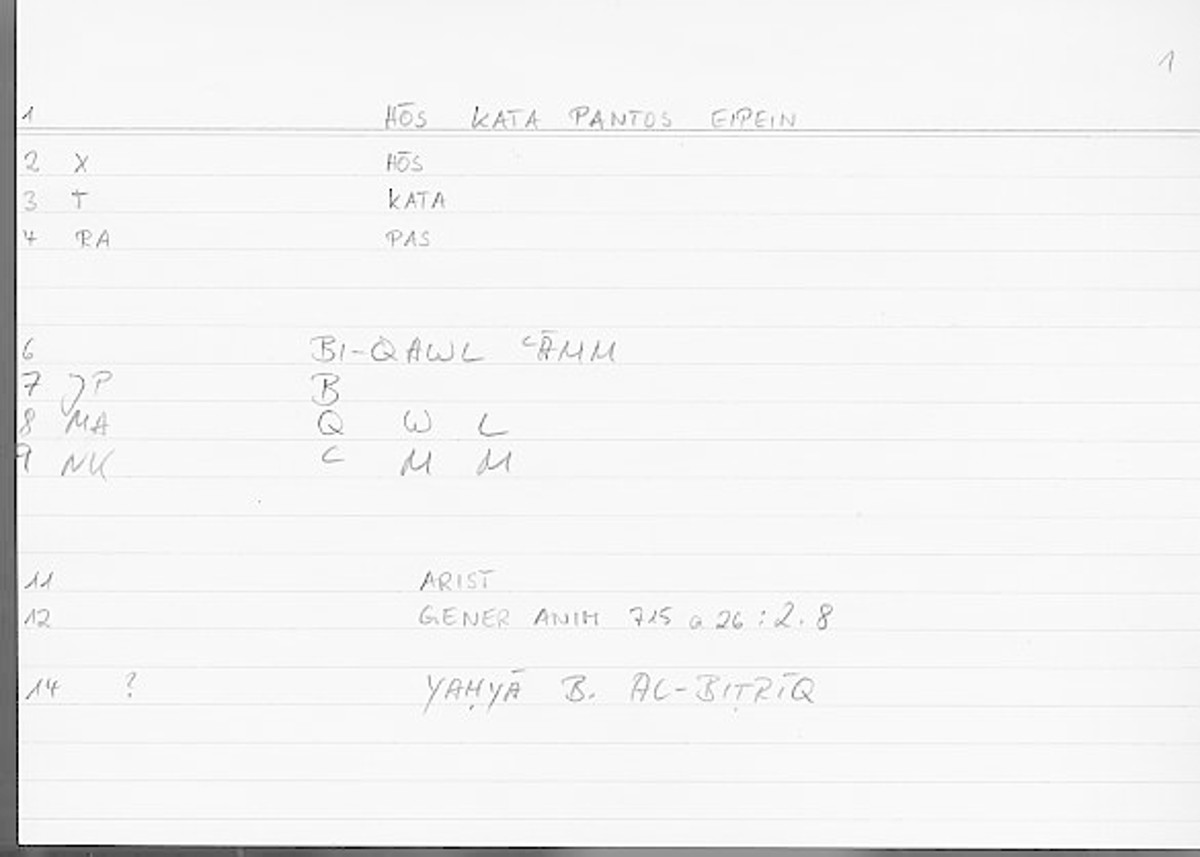 1
1 HŌS KATA PANTOS EIPEIN
2 X HŌS
3 T KATA
4 RA PAS
6 BI-QAWL ʿĀMM
7 JP B
8 MA Q W L
9 NK ʿ M M
11 ARIST
12 GENER ANIM 715 a 26 : 2.8
14 ? YAḤYĀ B. AL-BIṬRĪQ